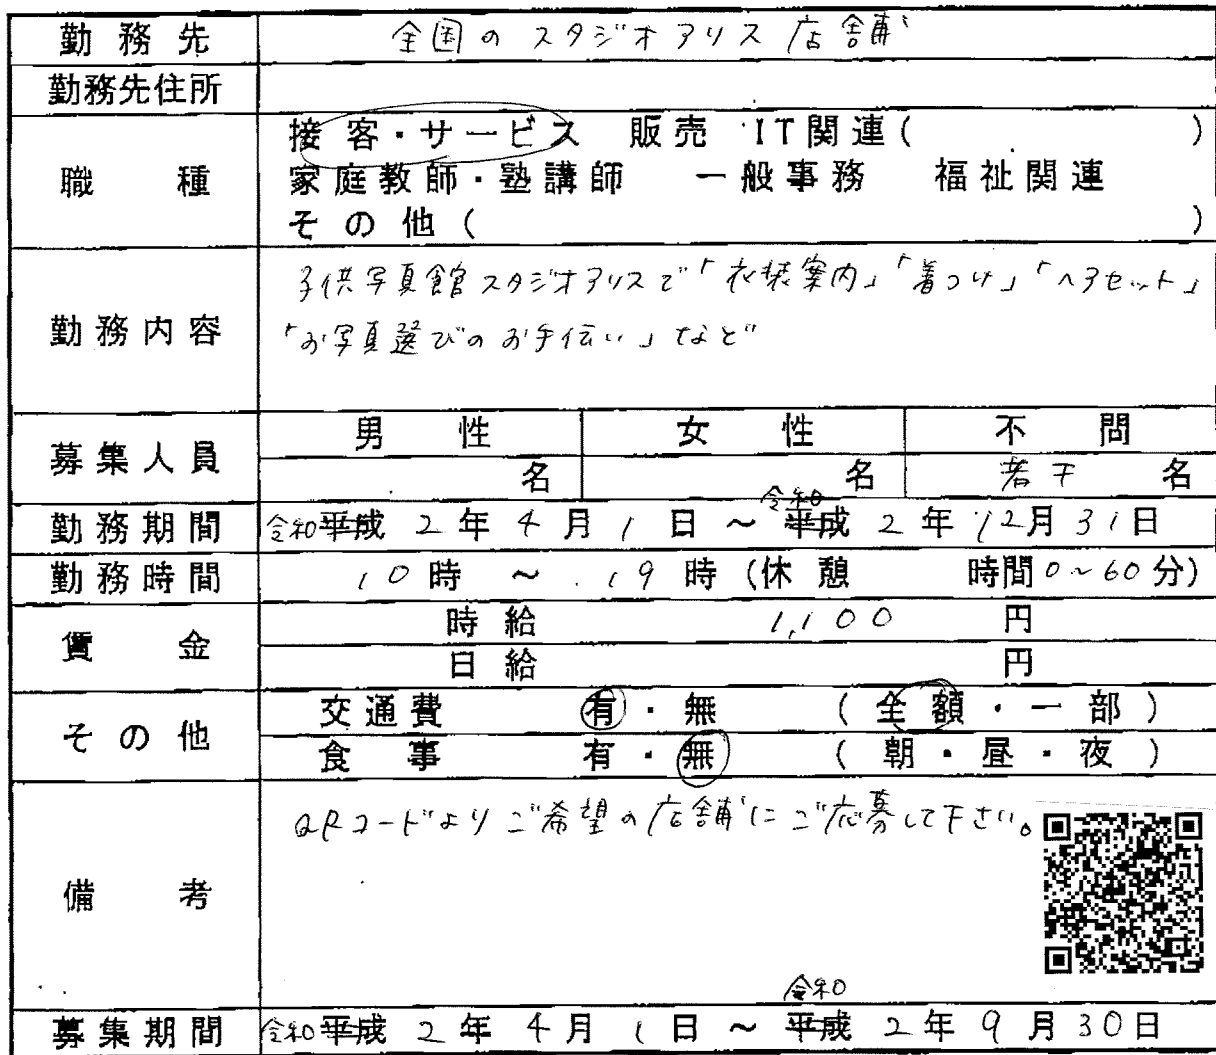 勤務先 全国のスタジオアリス店舗
勤務先住所
職種 接客・サービス 販売 IT関連( )
家庭教師・塾講師 一般事務 福祉関連
その他( )
勤務内容 子供写真館スタジオアリスで「衣装案内」「着つけ」「ヘアセット」
「お写真選びのお手伝い」など
募集人員 男性 女性 不問
名 名 若干 名
勤務期間 令和平成 2年 4月 1日 ~ 令和平成 2年 12月 31日
勤務時間 10時 ~ 19時 (休憩 時間0~60分)
賃金 時給 1,100 円
日給 円
その他 交通費 有・無 (全額・一部)
食事 有・無 (朝・昼・夜)
備考 QRコードよりご希望の店舗にご応募して下さい。
募集期間 令和平成 2年 4月 1日 ~ 令和平成 2年 9月 30日